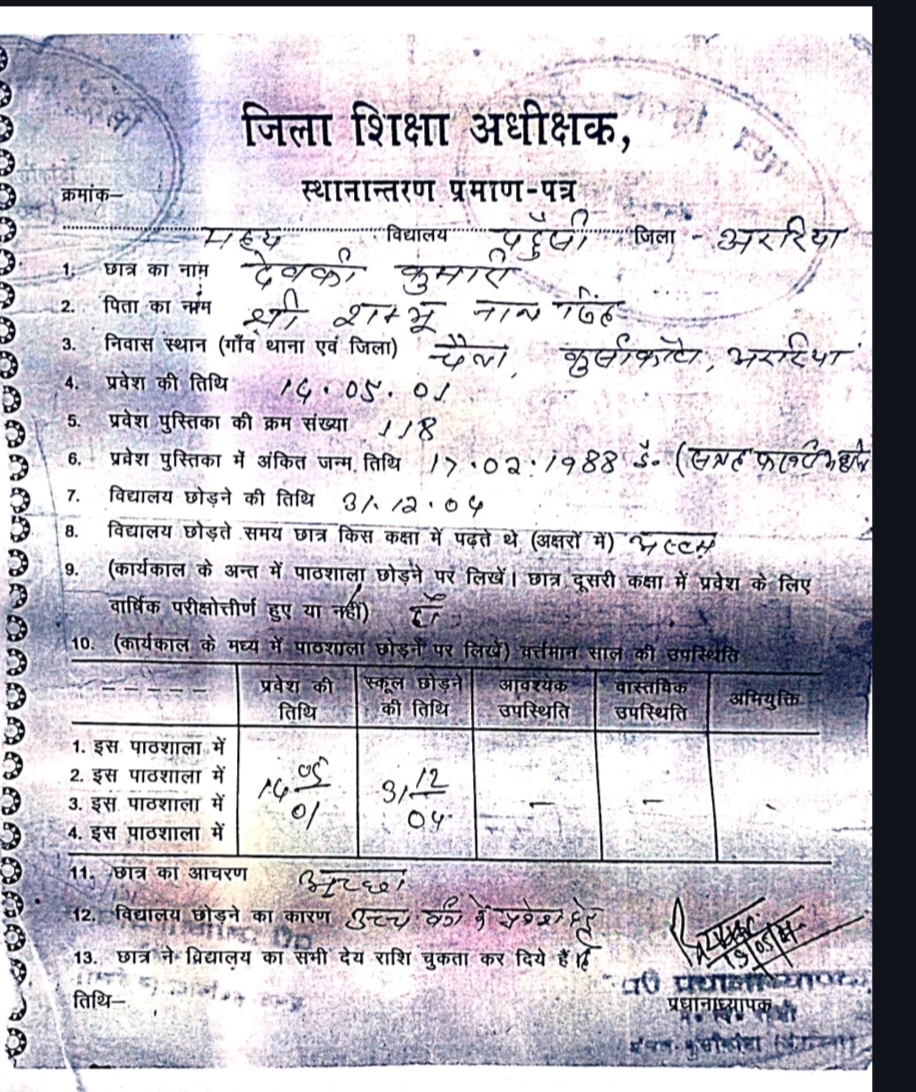 जिला शिक्षा अधीक्षक,
स्थानान्तरण प्रमाण-पत्र
क्रमांक–
मध्य विद्यालय पहुँसी जिला - अररिया
1. छात्र का नाम देवकी कुमारी
2. पिता का नाम श्री शम्भू नाथ सिंह
3. निवास स्थान (गाँव थाना एवं जिला) कुर्साकांटा, अररिया
4. प्रवेश की तिथि 14.05.01
5. प्रवेश पुस्तिका की क्रम संख्या 118
6. प्रवेश पुस्तिका में अंकित जन्म तिथि 17.02.1988 ई० (सत्रह फरवरी
7. विद्यालय छोड़ने की तिथि 31.12.04
8. विद्यालय छोड़ते समय छात्र किस कक्षा में पढ़ते थे (अक्षरों में) अष्टम
9. (कार्यकाल के अन्त में पाठशाला छोड़ने पर लिखें। छात्र दूसरी कक्षा में प्रवेश के लिए
वार्षिक परीक्षोत्तीर्ण हुए या नहीं) हाँ
10. (कार्यकाल के मध्य में पाठशाला छोड़ने पर लिखें) वर्त्तमान साल की उपस्थिति
– – – – – प्रवेश की तिथि स्कूल छोड़ने की तिथि आवश्यक उपस्थिति वास्तविक उपस्थिति अभियुक्ति
1. इस पाठशाला में
2. इस पाठशाला में 14 05/01 31 12/04 – –
3. इस पाठशाला में
4. इस पाठशाला में
11. छात्र का आचरण अच्छा
12. विद्यालय छोड़ने का कारण उच्च वर्ग में प्रवेश हेतु
13. छात्र ने विद्यालय का सभी देय राशि चुकता कर दिये हैं।
तिथि–
प्र० प्रधानाध्यापक
प्रधानाध्यापक